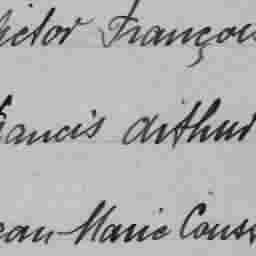 ictor François
rancis Arthur
ean-Marie Couss